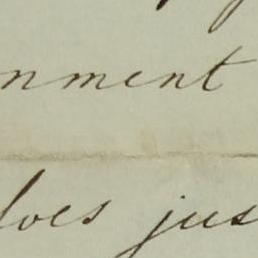 nment
does jus